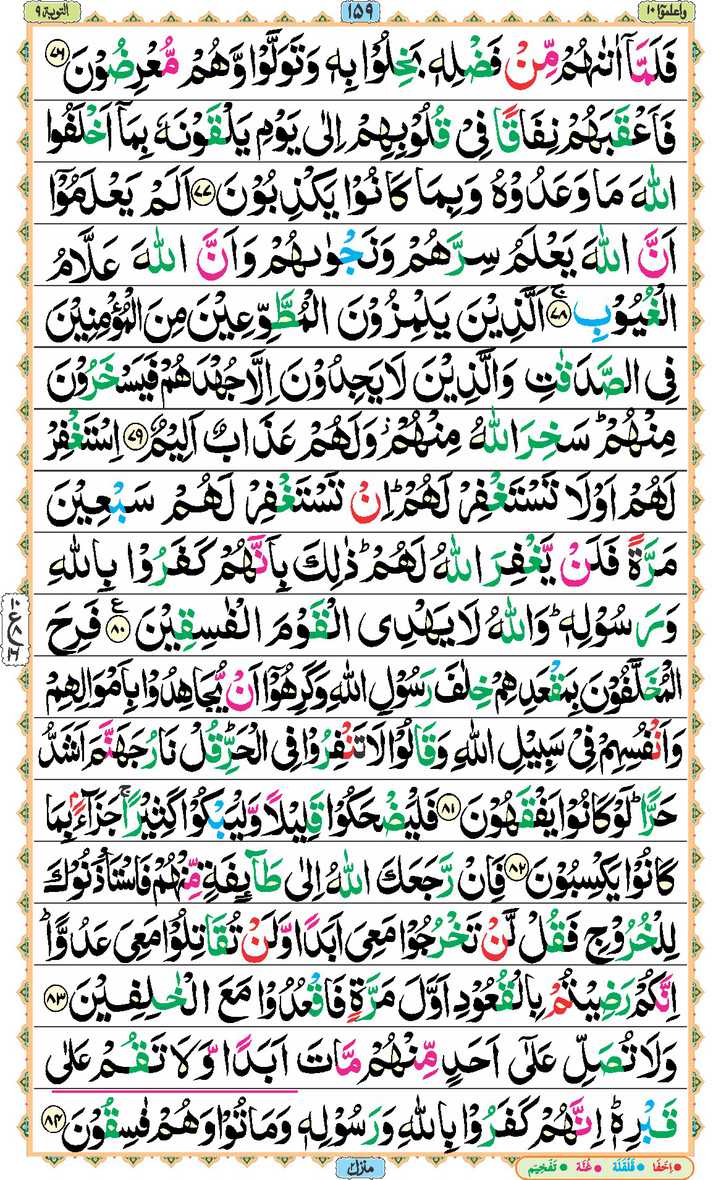 واعلموا ١٠
١٥٩
التوبة ٩
فَلَمَّاۤ اٰتٰىهُمْ مِّنْ فَضْلِهٖ بَخِلُوْا بِهٖ وَتَوَلَّوْا وَّهُمْ مُّعْرِضُوْنَ ۝٧٦
فَاَعْقَبَهُمْ نِفَاقًا فِیْ قُلُوْبِهِمْ اِلٰى یَوْمِ یَلْقَوْنَهٗ بِمَاۤ اَخْلَفُوا
اللّٰهَ مَا وَعَدُوْهُ وَبِمَا كَانُوْا یَكْذِبُوْنَ ۝٧٧ اَلَمْ یَعْلَمُوْۤا
اَنَّ اللّٰهَ یَعْلَمُ سِرَّهُمْ وَنَجْوٰىهُمْ وَاَنَّ اللّٰهَ عَلَّامُ
الْغُیُوْبِ ۝٧٨ۚ اَلَّذِیْنَ یَلْمِزُوْنَ الْمُطَّوِّعِیْنَ مِنَ الْمُؤْمِنِیْنَ
فِی الصَّدَقٰتِ وَالَّذِیْنَ لَا یَجِدُوْنَ اِلَّا جُهْدَهُمْ فَیَسْخَرُوْنَ
مِنْهُمْ ؕ سَخِرَ اللّٰهُ مِنْهُمْ ؗ وَلَهُمْ عَذَابٌ اَلِیْمٌ ۝٧٩ اِسْتَغْفِرْ
لَهُمْ اَوْ لَا تَسْتَغْفِرْ لَهُمْ ؕ اِنْ تَسْتَغْفِرْ لَهُمْ سَبْعِیْنَ
مَرَّةً فَلَنْ یَّغْفِرَ اللّٰهُ لَهُمْ ؕ ذٰلِكَ بِاَنَّهُمْ كَفَرُوْا بِاللّٰهِ
وَرَسُوْلِهٖ ؕ وَاللّٰهُ لَا یَهْدِی الْقَوْمَ الْفٰسِقِیْنَ ۝٨٠ۧ فَرِحَ
الْمُخَلَّفُوْنَ بِمَقْعَدِهِمْ خِلٰفَ رَسُوْلِ اللّٰهِ وَكَرِهُوْۤا اَنْ یُّجَاهِدُوْا بِاَمْوَالِهِمْ
وَاَنْفُسِهِمْ فِیْ سَبِیْلِ اللّٰهِ وَقَالُوْا لَا تَنْفِرُوْا فِی الْحَرِّ ؕ قُلْ نَارُ جَهَنَّمَ اَشَدُّ
حَرًّا ؕ لَوْ كَانُوْا یَفْقَهُوْنَ ۝٨١ فَلْیَضْحَكُوْا قَلِیْلًا وَّلْیَبْكُوْا كَثِیْرًا ۚ جَزَآءًۢ بِمَا
كَانُوْا یَكْسِبُوْنَ ۝٨٢ فَاِنْ رَّجَعَكَ اللّٰهُ اِلٰى طَآىِٕفَةٍ مِّنْهُمْ فَاسْتَاْذَنُوْكَ
لِلْخُرُوْجِ فَقُلْ لَّنْ تَخْرُجُوْا مَعِیَ اَبَدًا وَّلَنْ تُقَاتِلُوْا مَعِیَ عَدُوًّا ؕ
اِنَّكُمْ رَضِیْتُمْ بِالْقُعُوْدِ اَوَّلَ مَرَّةٍ فَاقْعُدُوْا مَعَ الْخٰلِفِیْنَ ۝٨٣
وَلَا تُصَلِّ عَلٰۤى اَحَدٍ مِّنْهُمْ مَّاتَ اَبَدًا وَّلَا تَقُمْ عَلٰى
قَبْرِهٖ ؕ اِنَّهُمْ كَفَرُوْا بِاللّٰهِ وَرَسُوْلِهٖ وَمَاتُوْا وَهُمْ فٰسِقُوْنَ ۝٨٤
منزل ٢
اِخْفَا قَلْقَلَة غُنَّة تَفْخِیْم